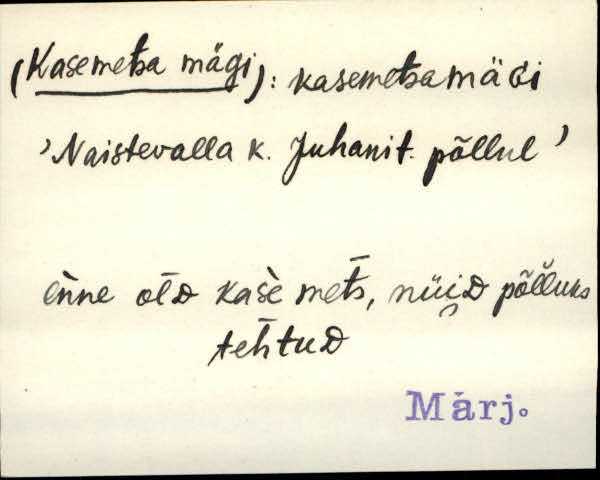 (Kasemetsa mägi): kasemetsamäGi
'Naistevalla k. Juhanit. põllul'
ènne olD kasè mets, nüi̯D põl̆luks
tehtuD
Märj.